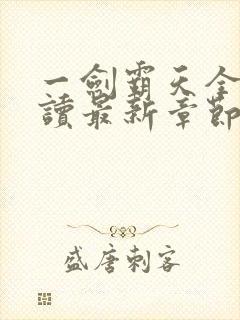 一劍霸天全
讀最新章節
盛唐刺客